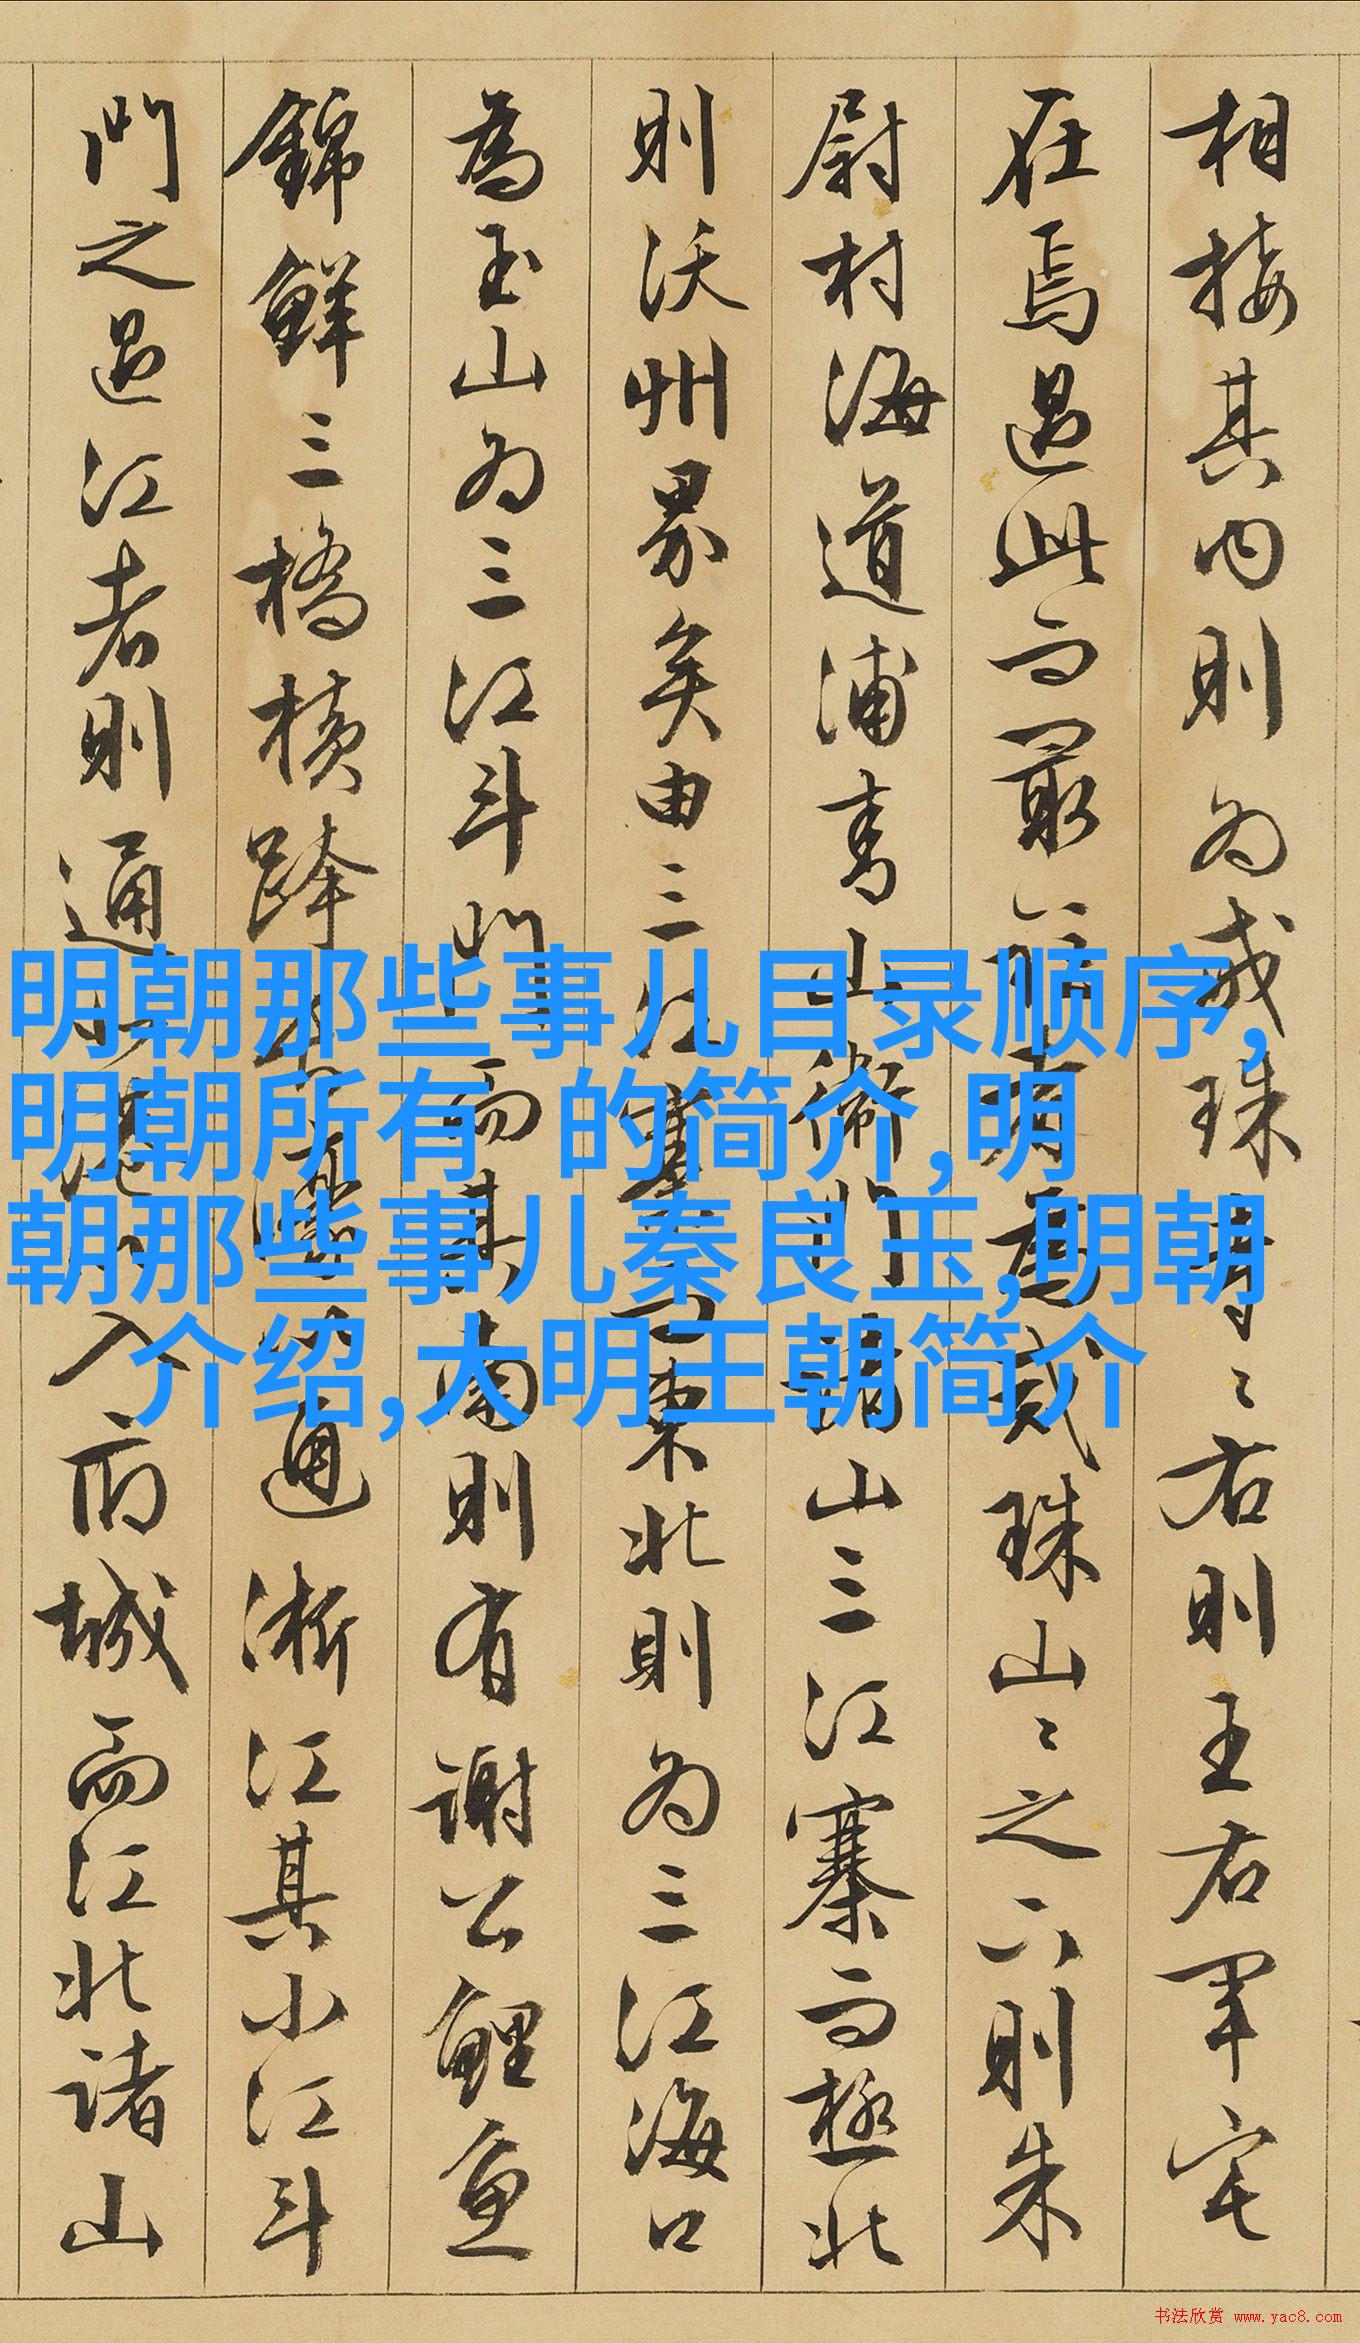 相接其内则为戒珠寺〻右则王右军宅
在焉过此而最
珠山〻之下则朱
尉村海道浦
山三江寨而极北
则沃州界矣由三江
东北则为三江海口
为玉山为三江斗门而其南则有谢公鲤鱼
锦鲜三桥横跨
通浙江其小江斗
门之过江者则通
入府城而江北诸山
明朝那些事儿目录顺序,
明朝所有 的简介,明
朝那些事儿秦良玉,明朝
介绍,大明王朝简介
书法欣赏 www.yac8.com